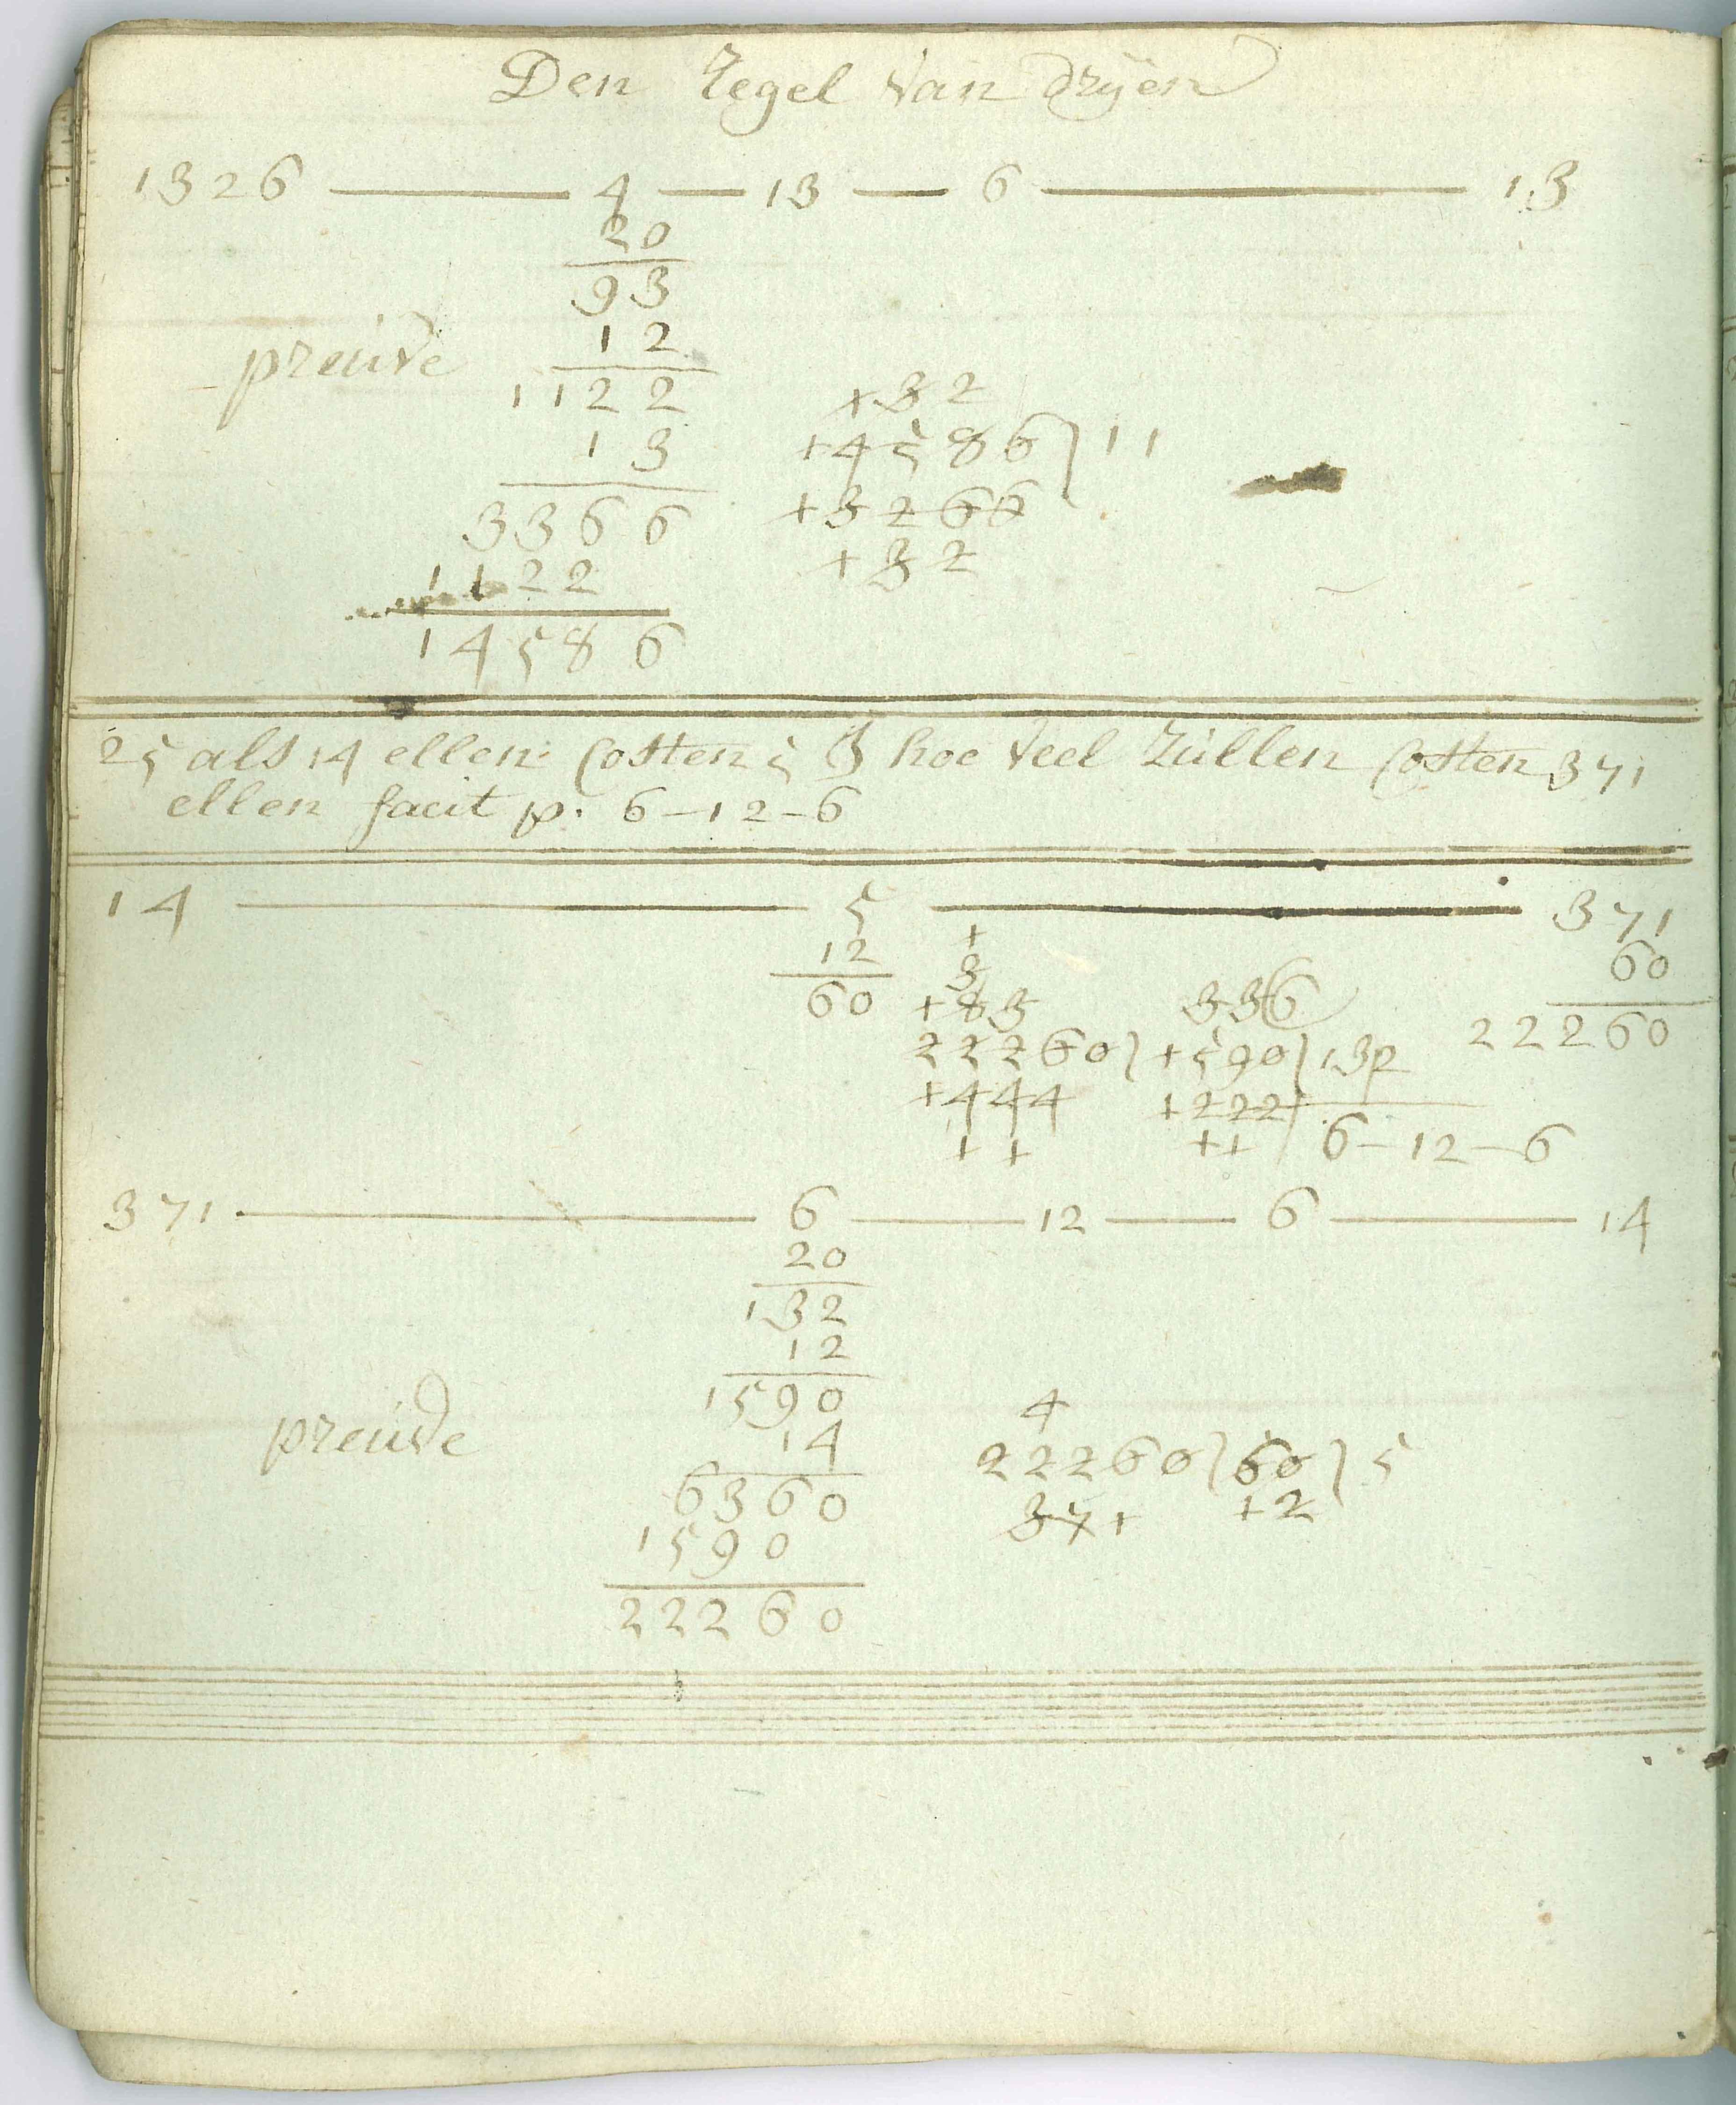 Den Regel van dryen
1326 — 4 — 13 — 6 — 13
20
93
12
preuve
1122
13
3366
1122
14586
132
14586 ) 11
13266
132
25 als 14 ellen costen 5 ß hoe veel zullen costen 371
ellen facit p. 6-12-6
14 — 5 — 371
12
60
60
22260
1
3
183
22260 ) 1590 ) 132
1444
11
336
1222
11
6-12-6
371 — 6 — 12 — 6 — 14
20
132
12
1590
preuve
14
6360
1590
22260
4
22260 ) 60 ) 5
371
12